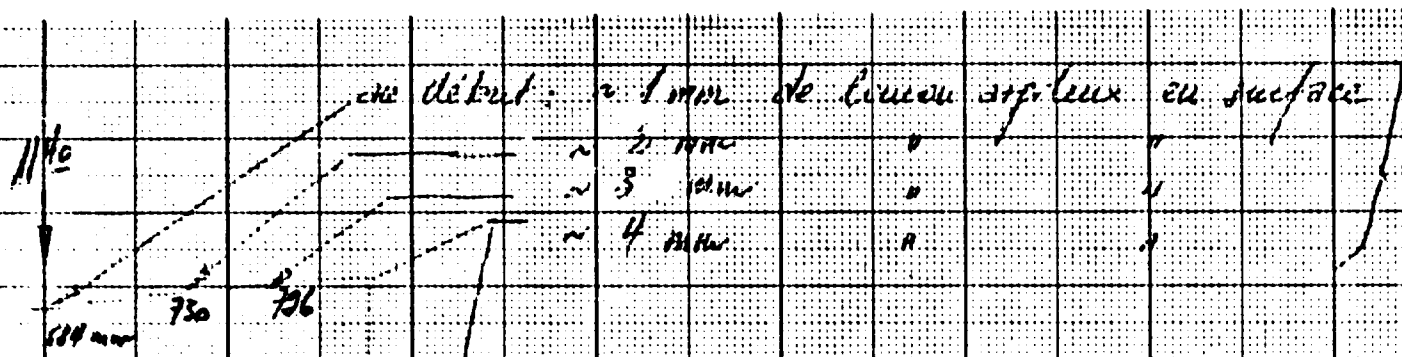 au début : ~ 1 mm de limon argileux en surface
11h40
~ 2 mm " "
~ 3 mm " "
~ 4 mm " "
730
796
684 mm